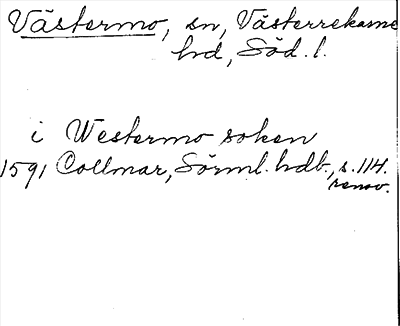 Västermo, sn, Västerrekarne
hd, Söd. l.
i Westermo soken
1591 Collmar, Sörml. hdb., s. 114.
renov.